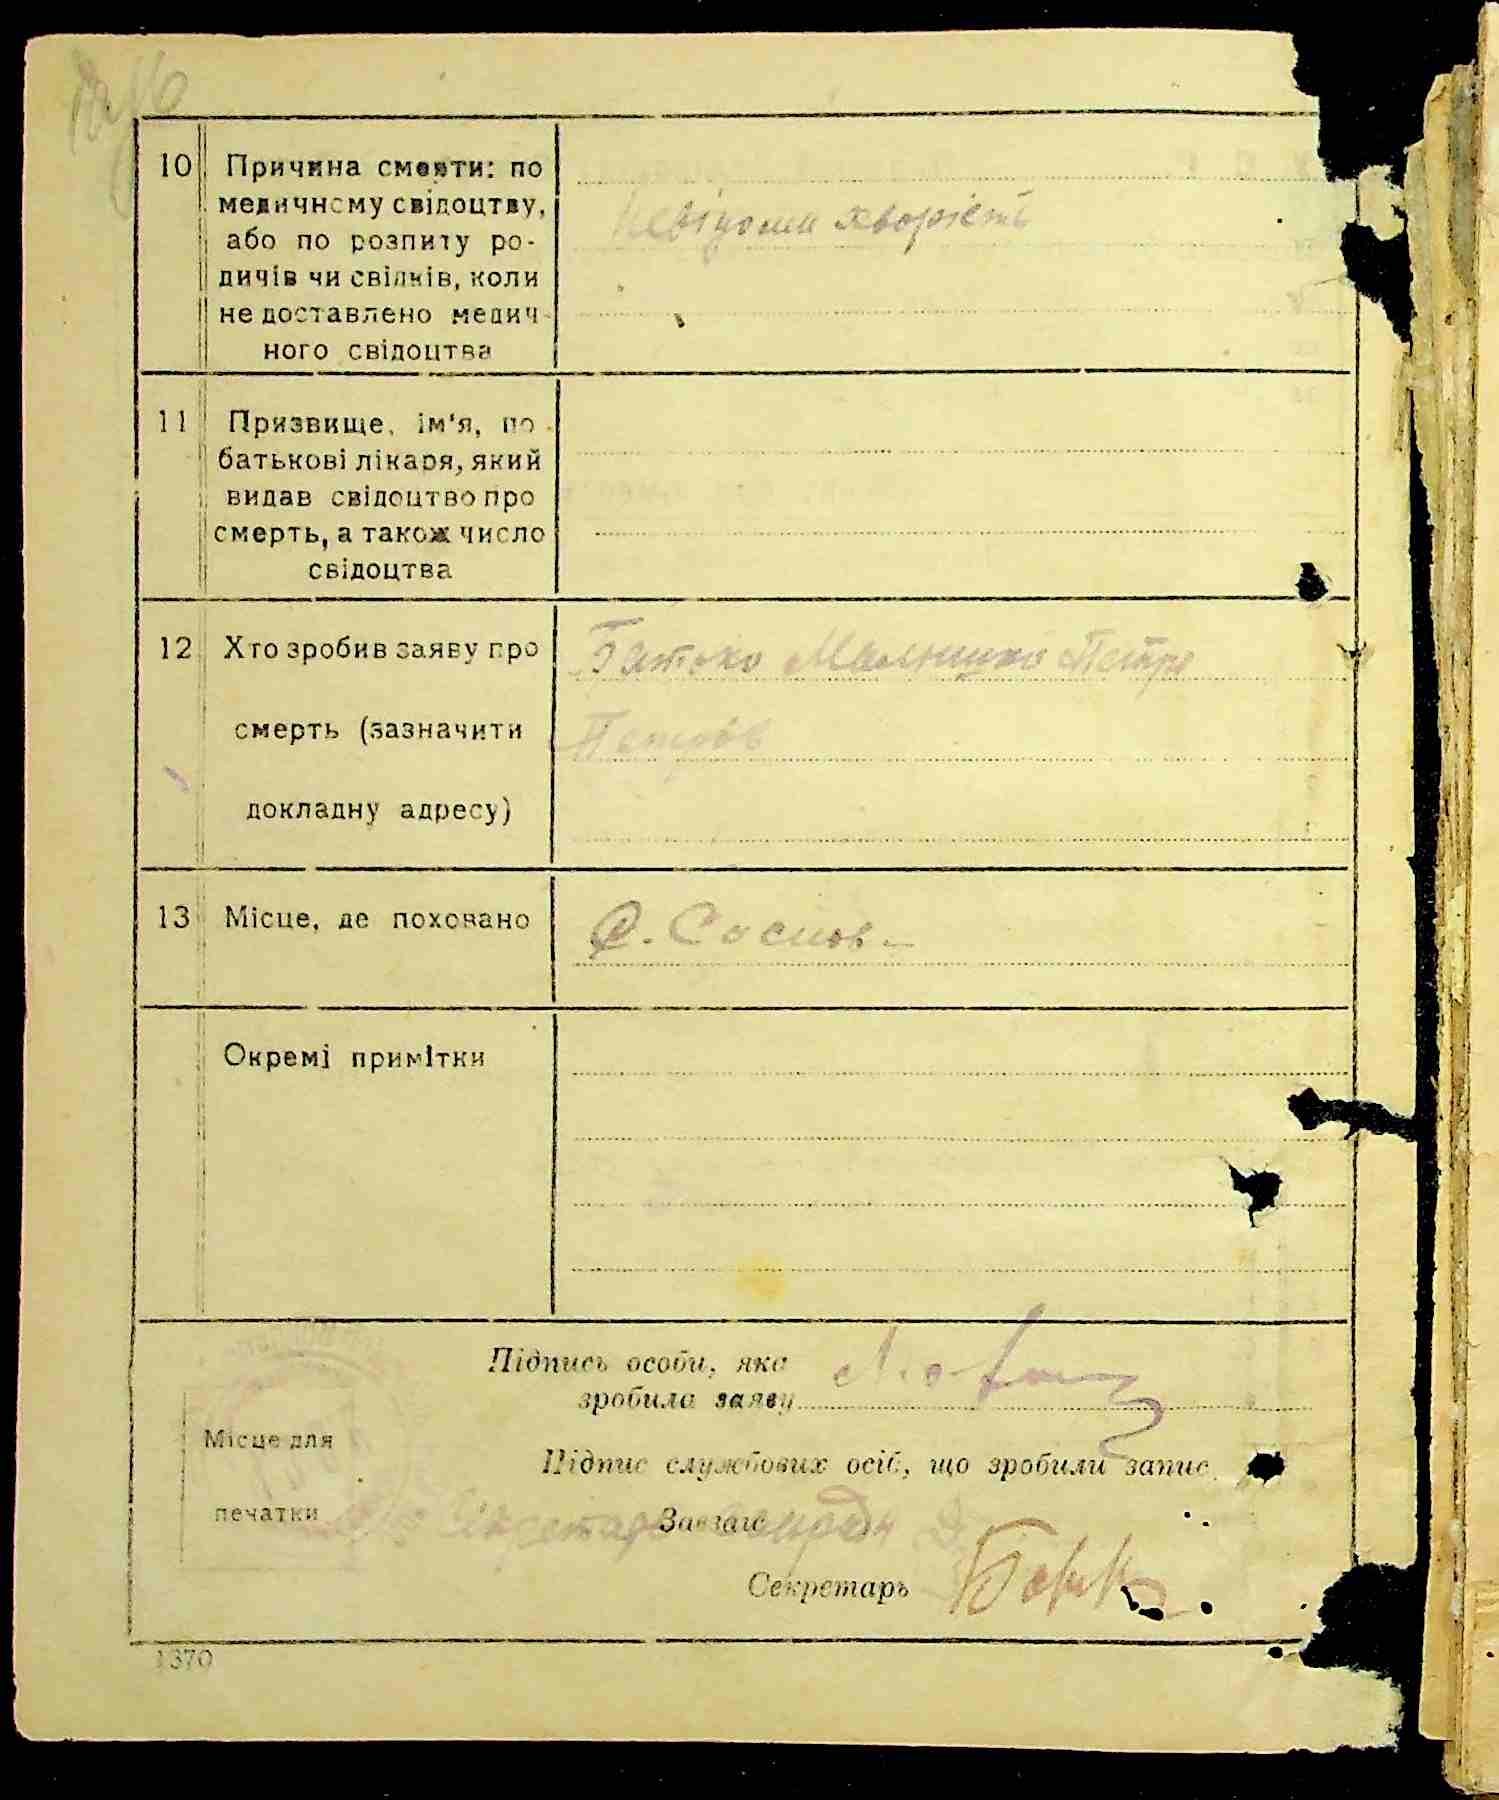 10 Причина смерти: по
медичному свідоцтву,
або по розпиту ро-
дичів чи свідків, коли
не доставлено медич-
ного свідоцтва
Невідома хворість
11 Призвище, ім'я, по
батькові лікаря, який
видав свідоцтво про
смерть, а також число
свідоцтва
12 Хто зробив заяву про
смерть (зазначити
докладну адресу)
Батько Петро
Петров
13 Місце, де поховано
С. Соснов-
Окремі примітки
Підпись особи, яка
зробила заяву
Місце для
печатки
Підпис службових осіб, що зробили запис
Завзагс
Секретарь
1370